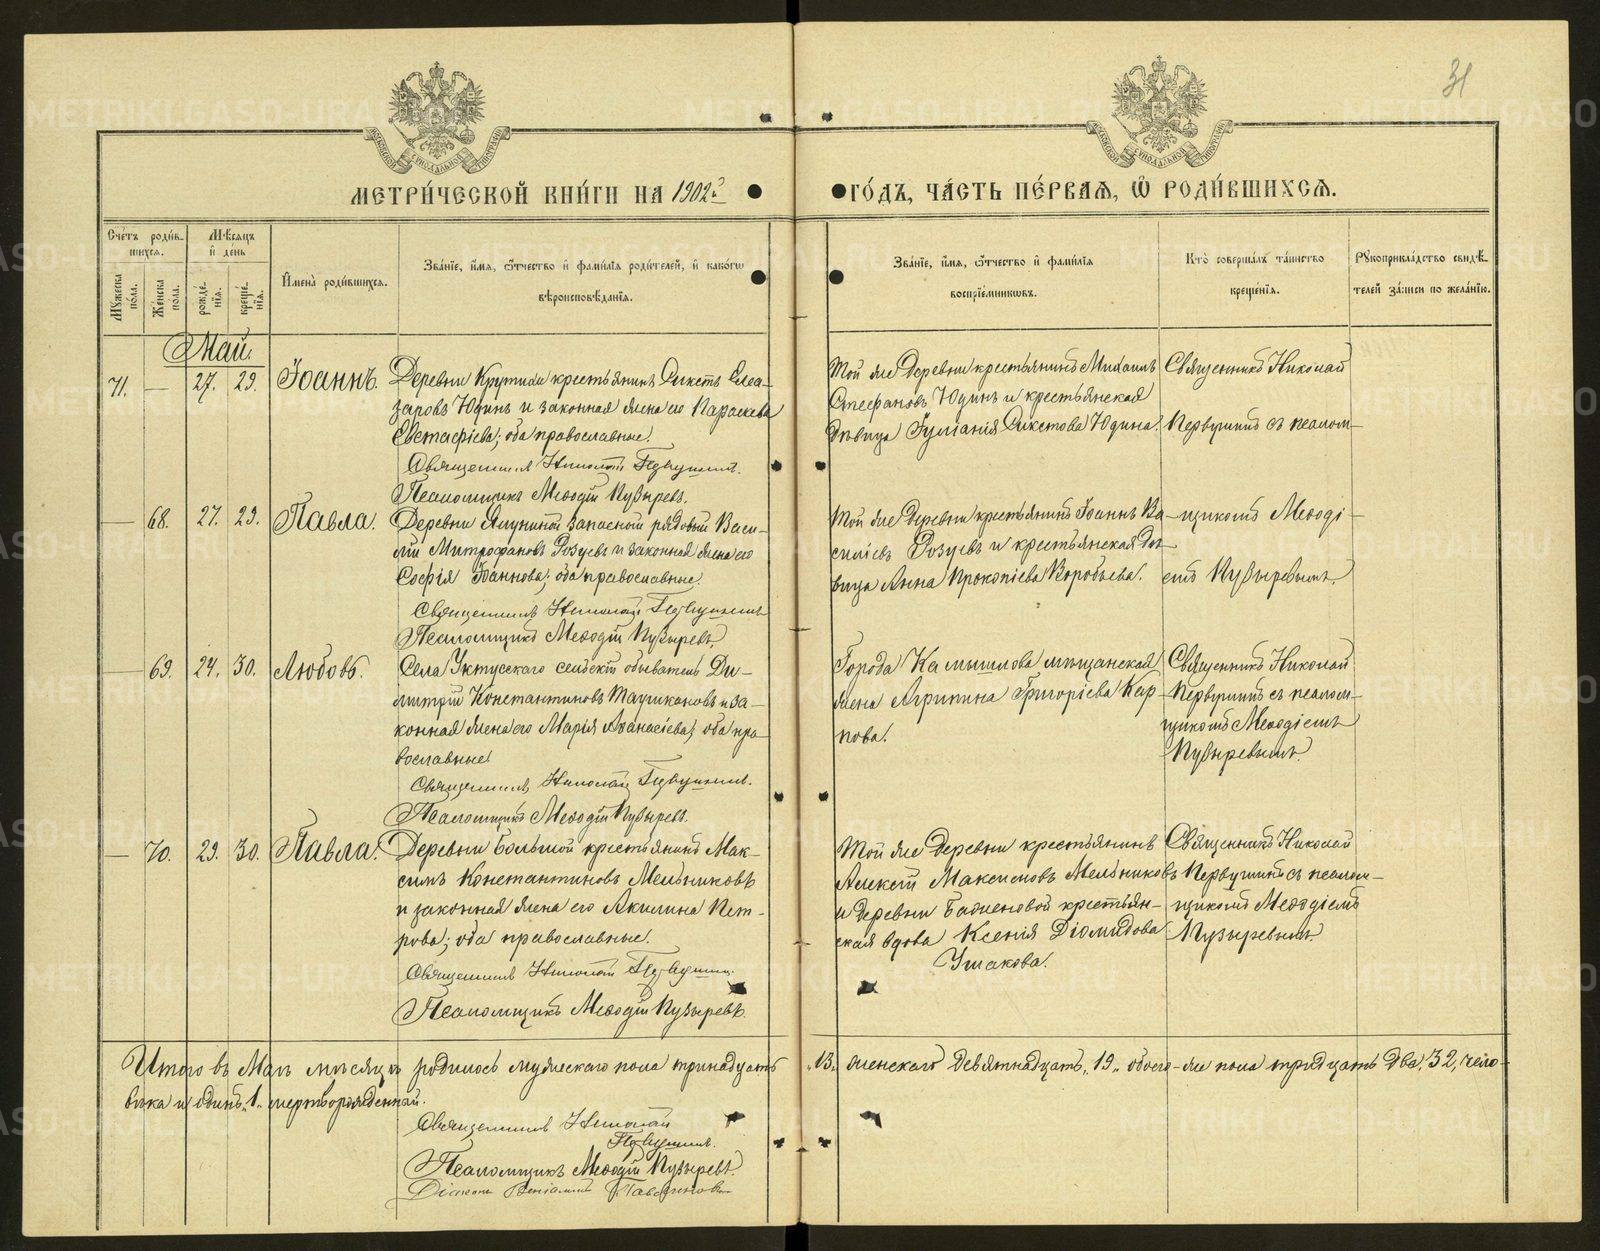 31
МЕТРИ́ЧЕСКОЙ КНИ́ГИ НА 1902й ГО́ДЪ, ЧА́СТЬ ПЕ́РВАѦ, Ѽ РОДИ́ВШИХСѦ.
Сче́тъ роди́вшихся.
Мѣсяцъ и де́нь
Мꙋжеска по́ла.
Же́нска по́ла.
рожде́нїѧ.
креще́нїѧ.
И҆мена̀ роди́вшихся.
Зва́нїе, и҆́мѧ, ѻ҆́тчество и҆ фами́лїѧ роди́телей, и҆ како́гѡ
вѣроисповѣ́данїѧ.
Зва́нїе, и҆́мѧ, ѻ҆́тчество и҆ фами́лїѧ
воспрїе́мникѡвъ.
Кто̀ соверша́лъ та́инство
креще́нїѧ.
Рꙋкоприкла́дство свидѣ́-
телей за́писи по жела́нїю.
Май.
71. — 27. 29. Іоаннъ.
Деревни Крутихи крестьянинъ Сикстъ Елеа-
заровъ Юдинъ и законная жена его Параскева
Евстафіева; оба православные.
Священникъ Николай Первушинъ.
Псаломщикъ Меѳодій Пузыревъ.
Той же деревни крестьянинъ Михаилъ
Стефановъ Юдинъ и крестьянская
дѣвица Іуліанія Сикстова Юдина.
Священникъ Николай
Первушинъ съ псалом-
— 68. 27. 29. Павла.
Деревни Ялуниной запасной рядовой Васи-
лій Митрофановъ Розуевъ и законная жена его
Софія Іоаннова; оба православные.
Священникъ Николай Первушинъ
Псаломщикъ Меѳодій Пузыревъ.
Той же деревни крестьянинъ Іоаннъ Ва-
силіевъ Розуевъ и крестьянская дѣ-
вица Анна Прокопіева Воробьева.
щикомъ Меѳоді-
емъ Пузыревымъ.
— 69. 24. 30. Любовь.
Села Уктусскаго сельскій обыватель Ди-
митрій Константиновъ Ташкановъ и за-
конная жена его Марія Аѳанасіева; оба пра-
вославные.
Священникъ Николай Первушинъ.
Псаломщикъ Меѳодій Пузыревъ.
Города Камышлова мѣщанская
жена Агрипина Григоріева Кар-
пова.
Священникъ Николай
Первушинъ съ псалом-
щикомъ Меѳодіемъ
Пузыревымъ.
— 70. 29. 30. Павла.
Деревни Большой крестьянинъ Мак-
симъ Константиновъ Мельниковъ
и законная жена его Акилина Пет-
рова; оба православные.
Священникъ Николай Первушинъ.
Псаломщикъ Меѳодій Пузыревъ.
Той же деревни крестьянинъ
Алексій Максимовъ Мельниковъ
и деревни крестьян-
ская вдова Ксенія Діомидова
Ушакова.
Священникъ Николай
Первушинъ съ псалом-
щикомъ Меѳодіемъ
Пузыревымъ.
Итого въ Маѣ мѣсяцѣ родилось мужескаго пола тринадцать „13„ женскаго девятнадцать „19„ обоего-же пола тридцать два, 32, чело-
вѣка и одинъ „1„ мертворожденный.
Священникъ Николай
Первушинъ.
Псаломщикъ Меѳодій Пузыревъ.
METRIKI.GASO-URAL.RU